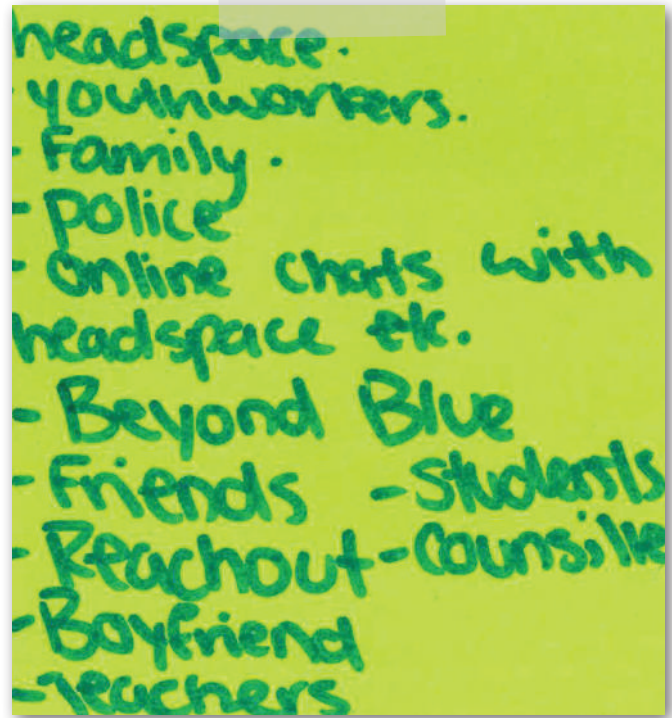 headspace.
- youthworkers.
- Family.
- police
- online chats with
headspace etc.
- Beyond Blue
- Friends - Students
- Reachout - Counsille
- Boyfriend
- Teachers